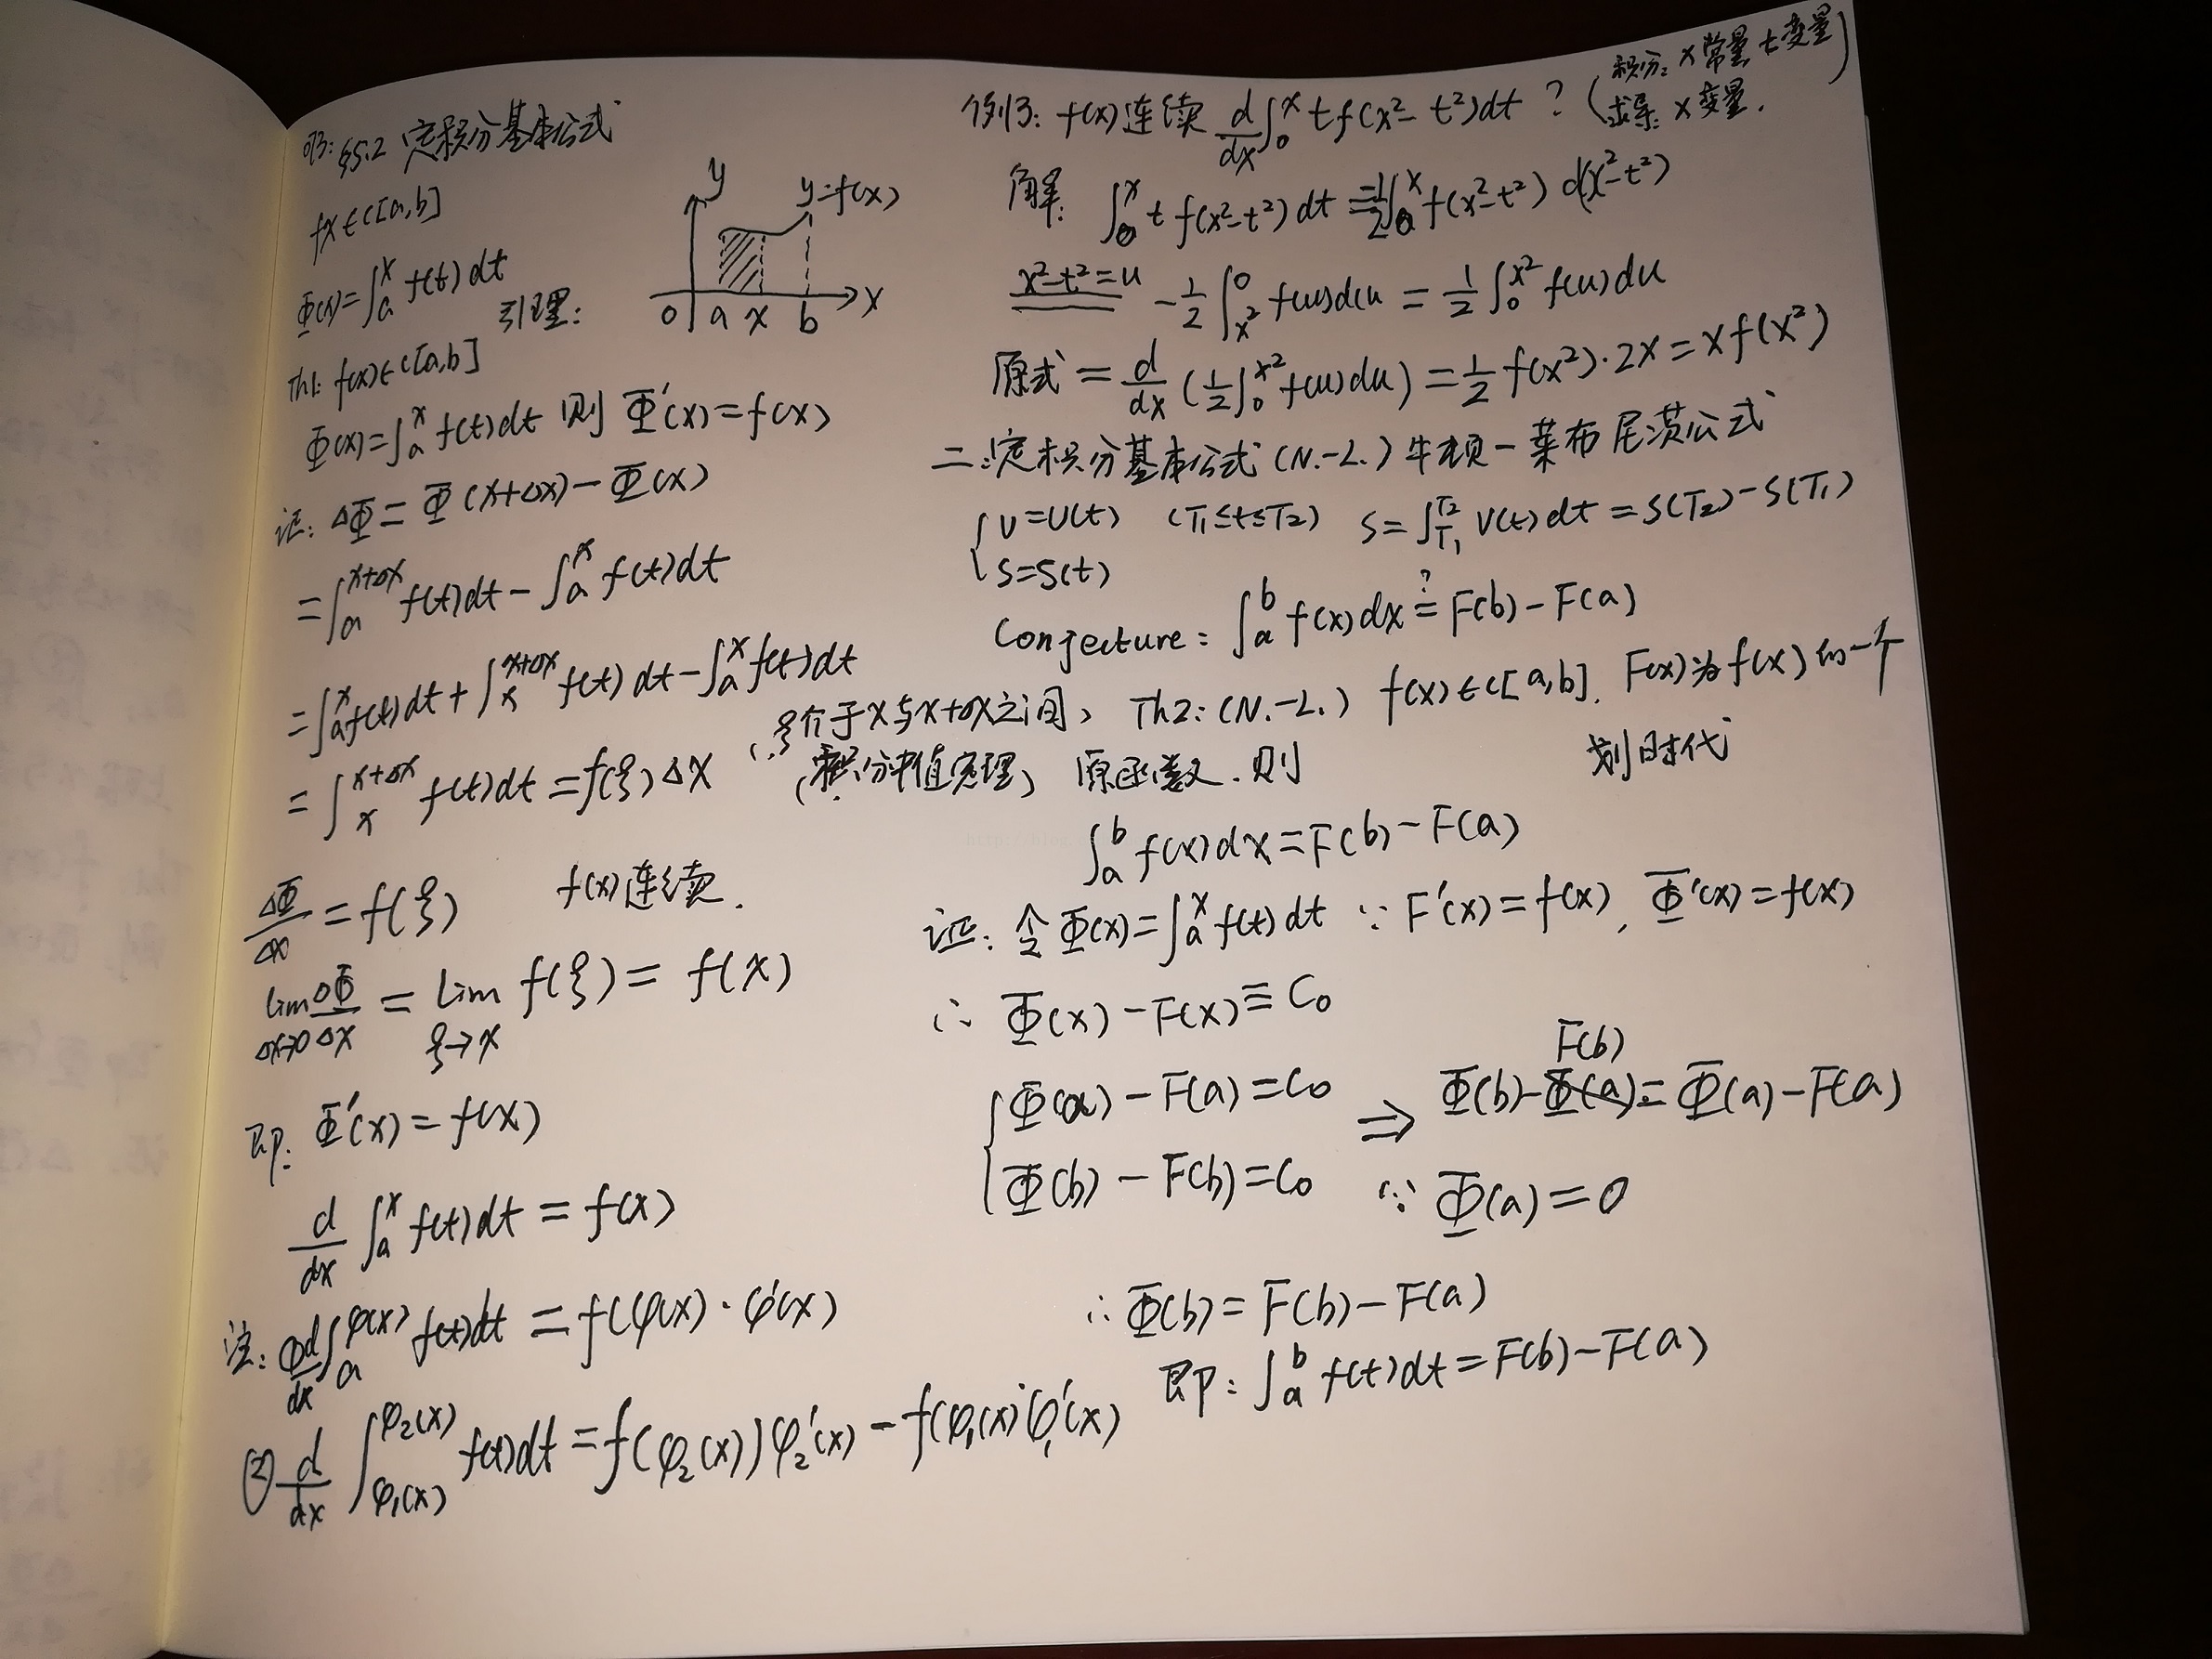 §5.2 定积分基本公式
fx∈C[a,b]
Φ(x)=∫ₐˣ f(t)dt
引理:
y
y=f(x)
0 a x b x
Th1: f(x)∈C[a,b]
Φ(x)=∫ₐˣ f(t)dt 则 Φ′(x)=f(x)
证: ΔΦ=Φ(x+Δx)-Φ(x)
=∫ₐ^{x+Δx} f(t)dt-∫ₐˣ f(t)dt
=∫ₐˣ f(t)dt+∫ₓ^{x+Δx} f(t)dt-∫ₐˣ f(t)dt
=∫ₓ^{x+Δx} f(t)dt=f(ξ)Δx (ξ介于x与x+Δx之间)
(积分中值定理)
ΔΦ/Δx=f(ξ) f(x)连续.
lim_{Δx→0} ΔΦ/Δx = lim_{ξ→x} f(ξ)=f(x)
即: Φ′(x)=f(x)
d/dx ∫ₐˣ f(t)dt=f(x)
注: ① d/dx ∫ₐ^{φ(x)} f(t)dt=f(φ(x)·φ′(x)
② d/dx ∫_{φ₁(x)}^{φ₂(x)} f(t)dt=f(φ₂(x))φ₂′(x)-f(φ₁(x)φ₁′(x)
例3: f(x)连续 d/dx ∫₀ˣ tf(x²-t²)dt ? (积分: x常量 t变量
求导: x变量.)
解: ∫₀ˣ t f(x²-t²)dt=-1/2∫₀ˣ f(x²-t²) d(x²-t²)
x²-t²=u -1/2 ∫_{x²}^0 f(u)du = 1/2 ∫₀^{x²} f(u)du
原式 = d/dx (1/2∫₀^{x²} f(u)du)=1/2 f(x²)·2x=xf(x²)
二:定积分基本公式(N.-L.)牛顿-莱布尼茨公式
{v=v(t) (T₁≤t≤T₂) S=∫_{T₁}^{T₂} v(t)dt=S(T₂)-S(T₁)
S=S(t)
Conjecture: ∫ₐᵇ f(x)dx ≟ F(b)-F(a)
Th2: (N.-L.) f(x)∈C[a,b]. F(x)为f(x)的一个
原函数.则 划时代
∫ₐᵇ f(x)dx=F(b)-F(a)
证: 令Φ(x)=∫ₐˣ f(t)dt ∵ F′(x)=f(x), Φ′(x)=f(x)
∴ Φ(x)-F(x)≡C₀
F(b)
{Φ(a)-F(a)=C₀ ⇒ Φ(b)-Φ(a)=Φ(a)-F(a)
Φ(b)-F(b)=C₀ ∵ Φ(a)=0
∴ Φ(b)=F(b)-F(a)
即: ∫ₐᵇ f(t)dt=F(b)-F(a)